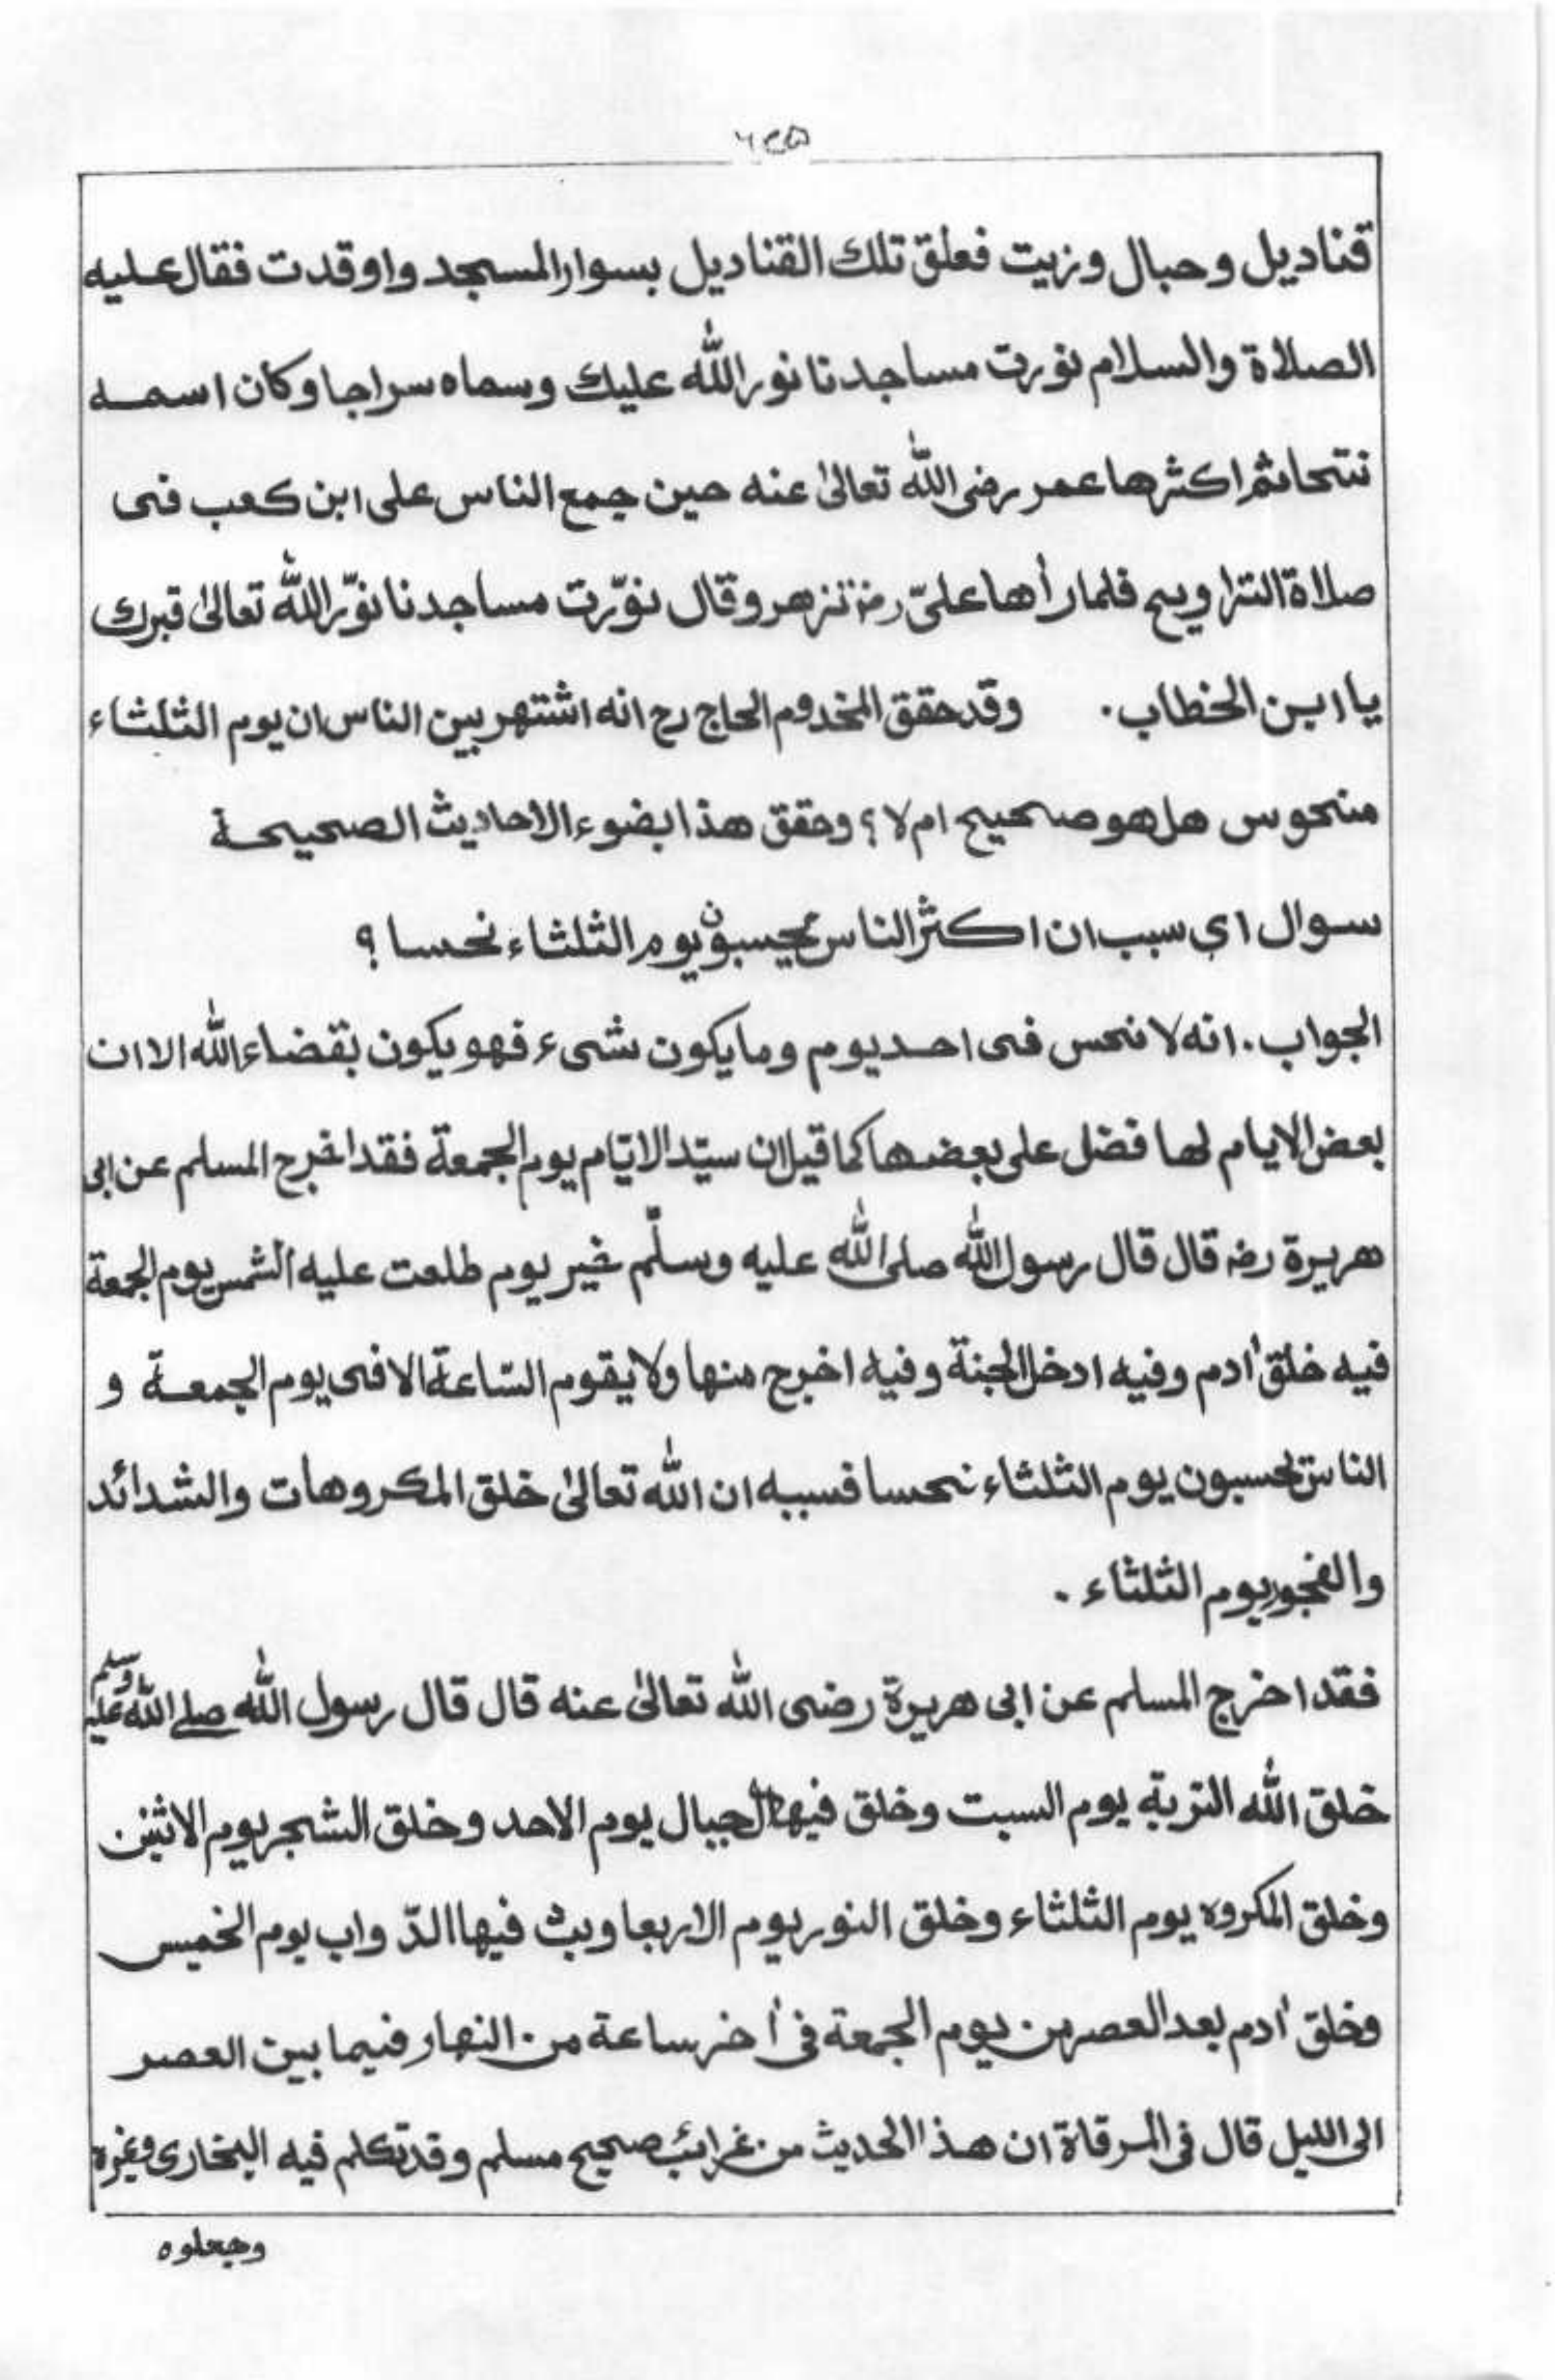 قناديل وحبال وزيت فعلق تلك القناديل بسوار المسجد واوقدت فقال عليه
الصلاة والسلام نورت مساجدنا نور الله عليك وسماه سراجا وكان اسمه
ثم اكثرها عمر رضى الله تعالىٰ عنه حين جمع الناس على ابن كعب فى
صلاة التراويح فلما رأها علىّ رضـ تزهر وقال نوّرت مساجدنا نوّر الله تعالىٰ قبرك
يا ابن الخطاب. وقد حقق المخدوم الحاج رح انه اشتهر بين الناس ان يوم الثلثاء
منحوس هل هو صحيح ام لا؟ وحقق هذا بضوء الاحاديث الصحيحة
سوال اى سبب ان اكثر الناس يحسبون يوم الثلثاء نحسا؟
الجواب. انه لا نحس فى احد يوم وما يكون شىء فهو يكون بقضاء الله الا ان
بعض الايام لها فضل على بعضها كما قيل ان سيّد الايّام يوم الجمعة فقد اخرج المسلم عن ابى
هريرة رضـ قال قال رسول الله صلى الله عليه وسلّم خير يوم طلعت عليه الشمس يوم الجمعة
فيه خلق أدم وفيه ادخل الجنة وفيه اخرج منها ولا يقوم السّاعة الا فى يوم الجمعة و
الناس يحسبون يوم الثلثاء نحسا فسببه ان الله تعالىٰ خلق المكروهات والشدائد
والفجور يوم الثلثاء.
فقد اخرج المسلم عن ابى هريرة رضى الله تعالىٰ عنه قال قال رسول الله صلى الله عليه وسلم
خلق الله التربة يوم السبت وخلق فيها الجبال يوم الاحد وخلق الشجر يوم الاثنين
وخلق المكروه يوم الثلثاء وخلق النور يوم الاربعا وبث فيها الدّواب يوم الخميس
وخلق أدم بعد العصر من يوم الجمعة فى أخر ساعة من النهار فيما بين العصر
الى الليل قال فى المرقاة ان هذا الحديث من غرائب صحيح مسلم وقد تكلم فيه البخارى وغيره
وجعلوه